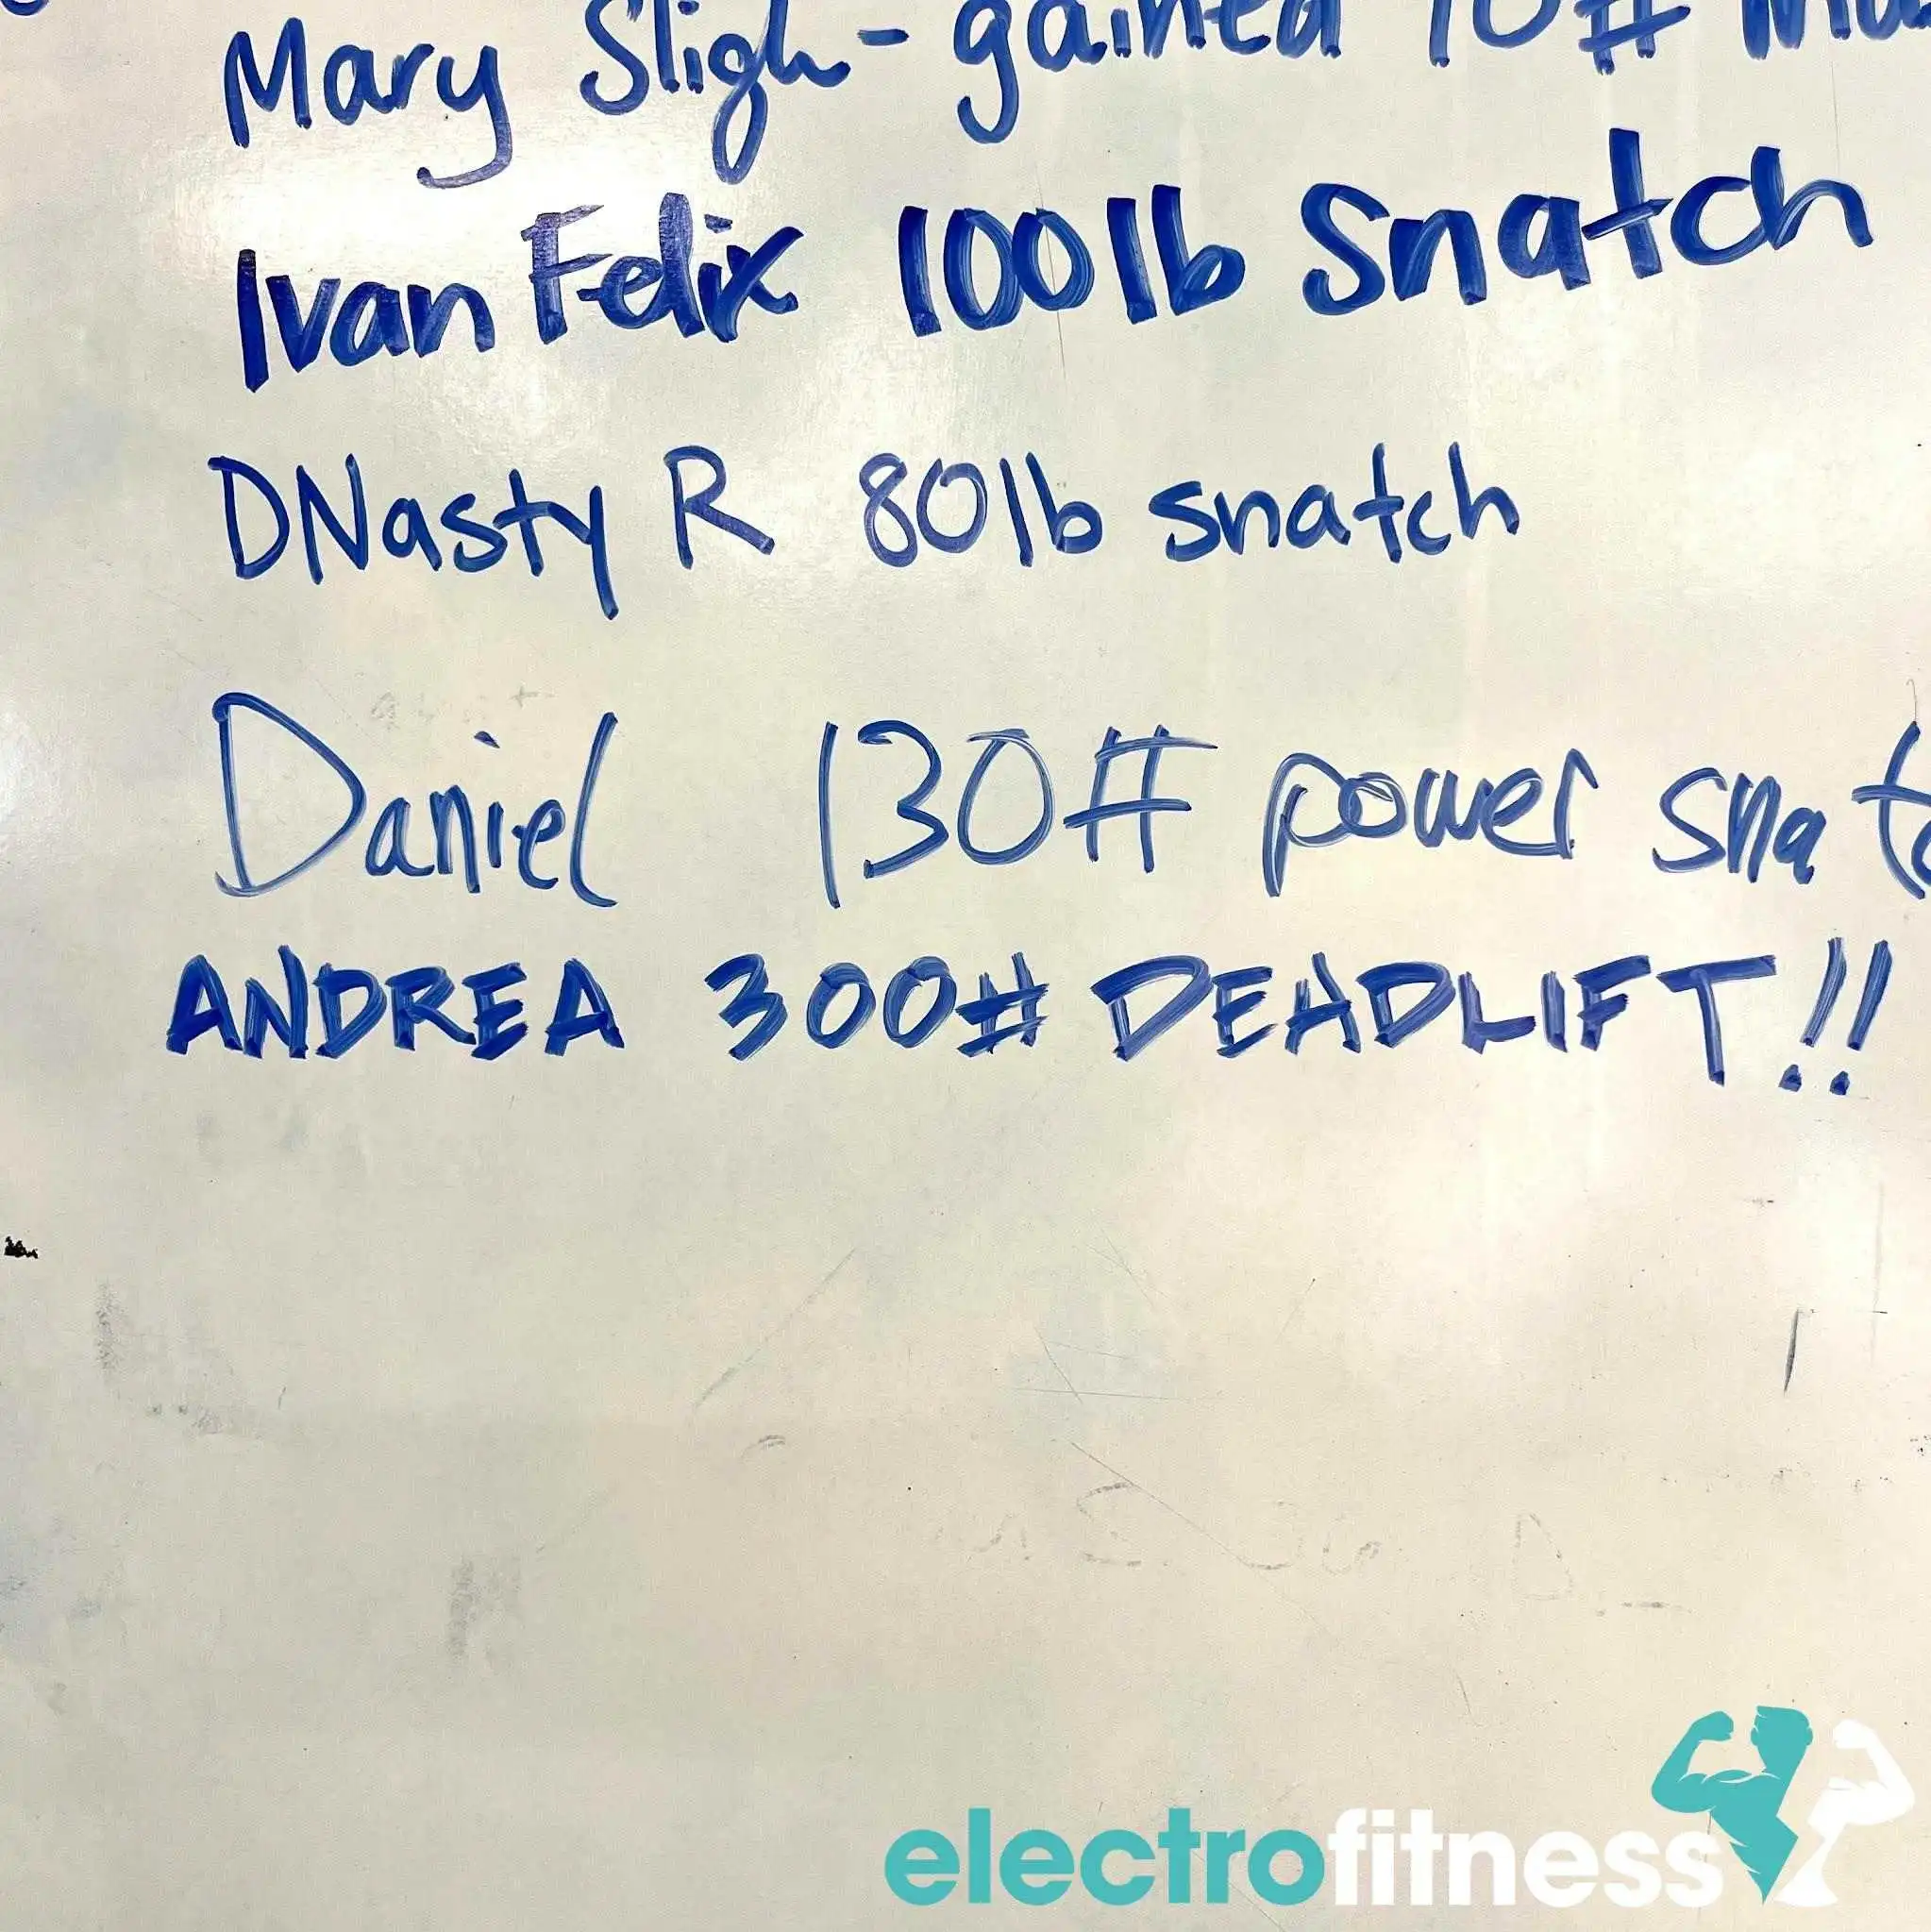 Mary Sligh - gained 10#
Ivan Felix 100lb Snatch
DNasty R 80lb snatch
Daniel 130# power
ANDREA 300# DEADLIFT!!
electrofitness